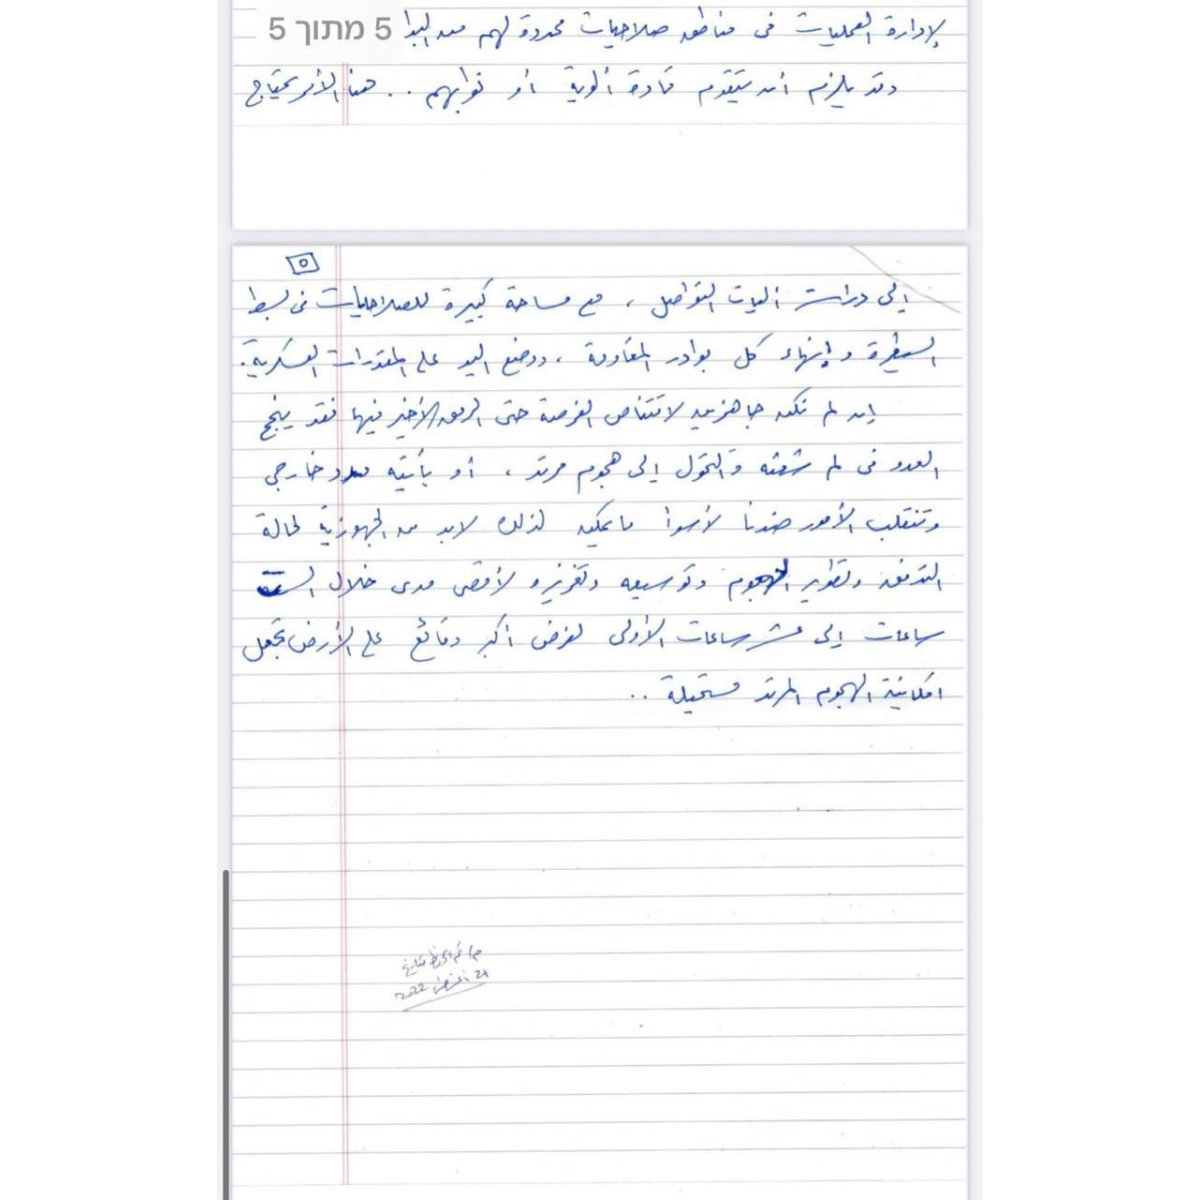 5 מתוך 5
لإدارة العمليات في مناطق صلاحيات محددة لهم من
وقد يلزم أن يتقدم قادة ألوية أو نوابهم .. هنا الأمر يحتاج
٥
إلى دراسة آليات التواصل ، مع مساحة كبيرة للصلاحيات في بسط
السيطرة وإنهاء كل بوادر المقاومة ، ووضع اليد على المقدرات العسكرية .
إن لم نكن جاهزين لاقتناص الفرصة حتى الرمق الأخير فيها فقد ينجح
العدو في لم شعثه والتحول إلى هجوم مرتد ، أو يأتيه مدد خارجي
وتنقلب الأمور ضدنا لأسوأ ما يمكن لذلك لابد من الجهوزية لحالة
التدفق وتطوير الهجوم وتوسيعه وتعزيزه لأقصى مدى خلال الست
ساعات إلى عشر ساعات الأولى لفرض أكبر وقائع على الأرض تجعل
امكانية الهجوم المرتد مستحيلة ..
24 أغسطس 2022